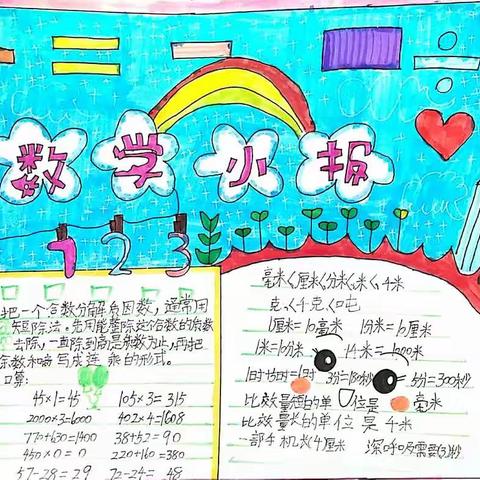 数学小报
1 2 3
把一个合数分解质因数,通常用
短除法。先用能整除这个合数的质数
去除,一直除到商是质数为止,再把
除数和商写成连乘的形式。
口算:
45×1=45 105×3=315
2000×3=6000 402×4=1608
770+630=1400 38+52=90
450×0=0 220+160=380
57-28=29 72-24=48
毫米<厘米<分米<米<千米
克<千克<吨
1厘米=10毫米 1分米=10厘米
1米=10分米 1千米=
3分=180秒 5分=300秒
比效量短的单位是 毫米
比效量长的单位是千米
一部手机长 厘米 深呼吸需要 秒